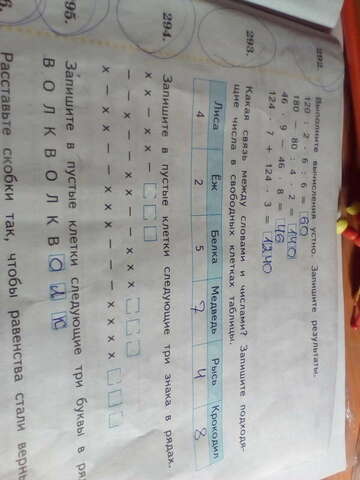 292. Выполните вычисления устно. Запишите результаты.
120 : 2 · 6 : 6 = 60
180 − 80 : 4 · 2 = 140
46 · 9 − 46 · 8 = 46
124 · 7 + 124 · 3 = 1240
293. Какая связь между словами и числами? Запишите подходя-
щие числа в свободных клетках таблицы.
Лиса Ёж Белка Медведь Рысь Крокодил
4 2 5 7 4 8
294. Запишите в пустые клетки следующие три знака в рядах.
х х − х х −
95. Запишите в пустые клетки следующие три буквы в ря
В О Л К В О Л К В О Л К
6. Расставьте скобки так, чтобы равенства стали верны